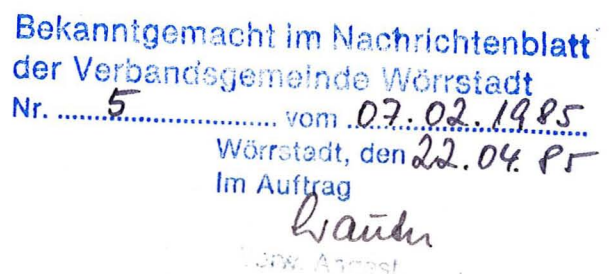 Bekanntgemacht im Nachrichtenblatt
der Verbandsgemeinde Wörrstadt
Nr. 5 vom 07.02.1985
Wörrstadt, den 22.04.85
Im Auftrag